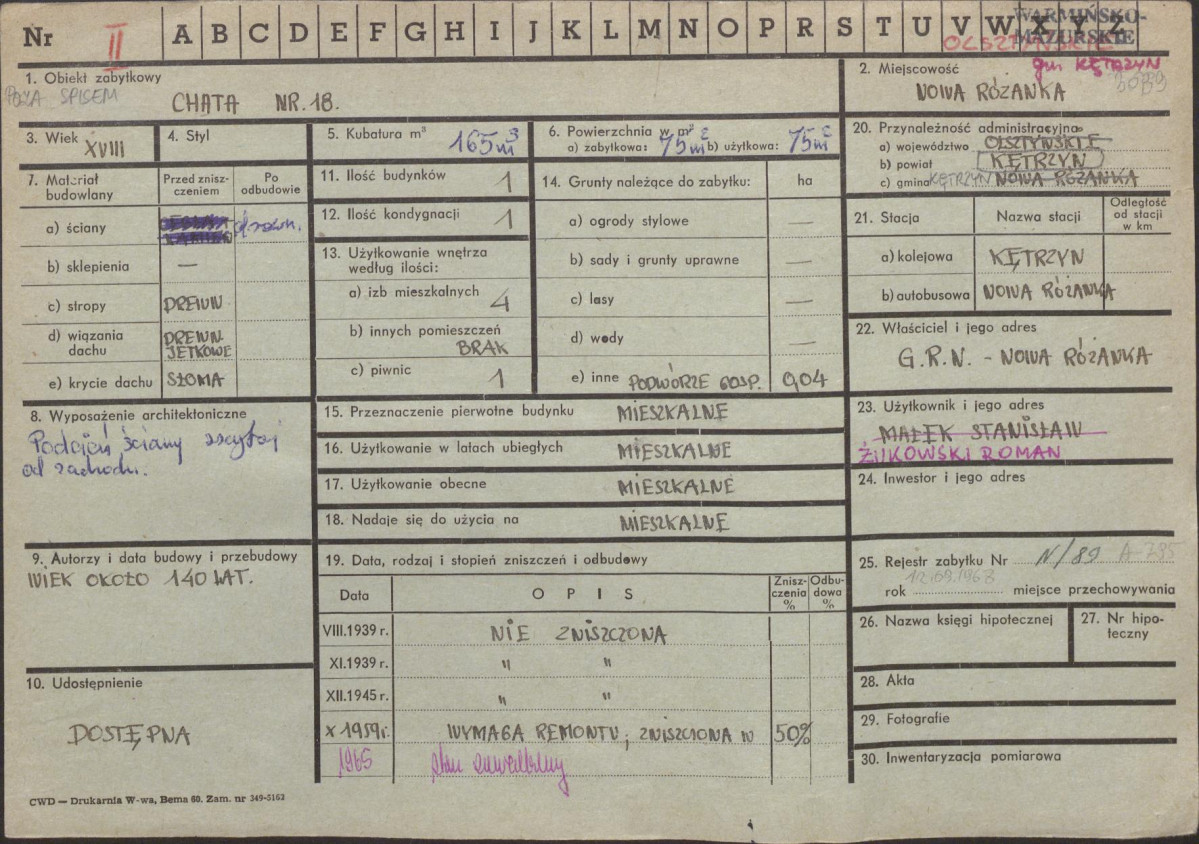 Nr II A B C D E F G H I J K L M N O P R S T U V W X Y Z
WARMIŃSKO-
MAZURSKIE
OLSZTYŃSKIE
gm KĘTRZYN
1. Obiekt zabytkowy
POZA SPISEM
CHATA NR. 18.
2. Miejscowość
NOWA RÓŻANKA
3. Wiek XVIII
4. Styl
5. Kubatura m³ 165 m³
6. Powierzchnia w m²
a) zabytkowa: 75 m² b) użytkowa: 75 m²
20. Przynależność administracyjna
a) województwo OLSZTYŃSKIE
b) powiat KĘTRZYN
c) gmina KĘTRZYN NOWA RÓŻANKA
7. Materiał budowlany
Przed zniszczeniem
Po odbudowie
a) ściany drewn.
b) sklepienia —
c) stropy DREWN
d) wiązania dachu DREWN. JĘTKOWE
e) krycie dachu SŁOMA
11. Ilość budynków 1
12. Ilość kondygnacji 1
13. Użytkowanie wnętrza
według ilości:
a) izb mieszkalnych 4
b) innych pomieszczeń
BRAK
c) piwnic 1
14. Grunty należące do zabytku: ha
a) ogrody stylowe —
b) sady i grunty uprawne —
c) lasy —
d) wody —
e) inne PODWÓRZE GOSP. 0,04
21. Stacja
Nazwa stacji
Odległość
od stacji
w km
a) kolejowa KĘTRZYN
b) autobusowa NOWA RÓŻANKA
22. Właściciel i jego adres
G.R.N. - NOWA RÓŻANKA
8. Wyposażenie architektoniczne
Podcień ściany szczytowej
od zachodu.
15. Przeznaczenie pierwotne budynku MIESZKALNE
16. Użytkowanie w latach ubiegłych MIESZKALNE
17. Użytkowanie obecne MIESZKALNE
18. Nadaje się do użycia na MIESZKALNE
23. Użytkownik i jego adres
MAŁEK STANISŁAW
ŻUKOWSKI ROMAN
24. Inwestor i jego adres
9. Autorzy i data budowy i przebudowy
WIEK OKOŁO 140 LAT.
19. Data, rodzaj i stopień zniszczeń i odbudowy
Data
O P I S
Zniszczenia %
Odbudowa %
VIII.1939 r. NIE ZNISZCZONA
XI.1939 r. " "
XII.1945 r. " "
X 1959 r. WYMAGA REMONTU; ZNISZCZONA W 50%
1965 stan zawalony
25. Rejestr zabytku Nr N/89 A-785
12.09.1968
rok miejsce przechowywania
26. Nazwa księgi hipotecznej
27. Nr hipoteczny
10. Udostępnienie
DOSTĘPNA
28. Akta
29. Fotografie
30. Inwentaryzacja pomiarowa
CWD — Drukarnia W-wa, Bema 60. Zam. nr 349-5163